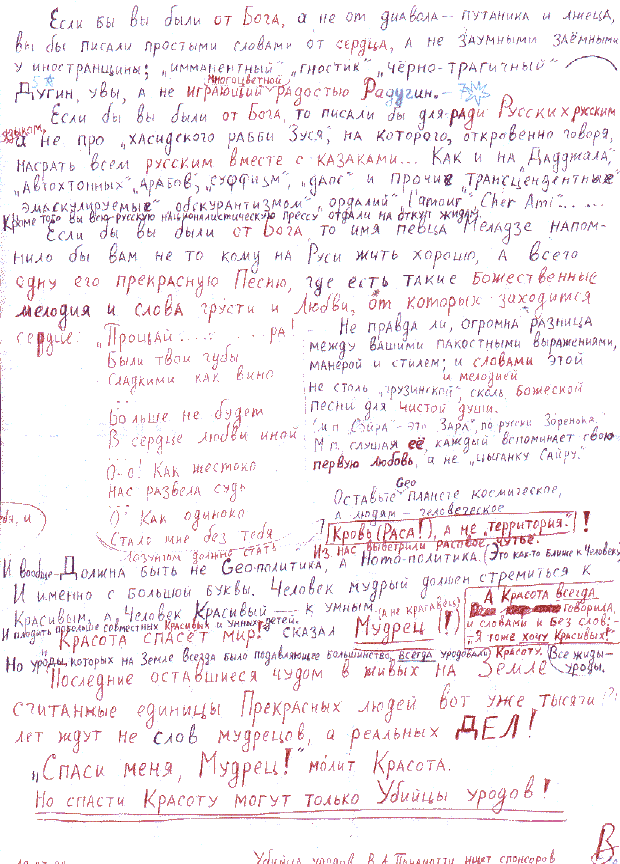 Если бы вы были от Бога, а не от диавола — путаника и лжеца,
вы бы писали простыми словами от сердца, а не заумными заёмными
у иностранщины; „имманентный“ „гностик“ „чёрно-трагичный“
Дугин, увы, а не играющий многоцветной радостью Радугин. —
Если бы вы были от Бога, то писали бы для ради Русских русским
языком,
а не про „хасидского рабби Зуся“, на которого, откровенно говоря,
насрать всем русским вместе с казаками... Как и на „Дадджала“,
„Автохтонных“ „арабов“, „суффизм“, „дапс“ и прочие „трансцендентные“
„эмаскулируемые“ обскурантизмом“, „ордалий“, „l'amour“, „Cher Ami“.....
Кроме того вы всю русскую националистическую прессу отдали на откуп жидам.
Если бы вы были от Бога, то имя певца Меладзе напом-
нило бы вам не то кому на Руси жить хорошо, а всего
одну его прекрасную Песню, где есть такие Божественные
мелодия и слова грусти и Любви, от которых заходится
сердце: „Прощай ......ра!
Были твои губы
Сладкими как вино
Больше не будет
В сердце любви иной
О-о! Как жестоко
Нас развела судь
О Как одиноко
Стало мне без тебя
Не правда ли, огромна разница
между вашими пакостными выражениями,
манерой и стилем; и словами этой
и мелодией
не столь „грузинской“, сколь Божеской
песни для чистой души.
Сэйра — это „Зара“, по русски Зоренька.
слушая её, каждый вспоминает свою
первую любовь, а не „цыганку Сайру“.
Оставьте Geo планете космическое,
а людям — человеческое
Кровь (Раса!), а не „территория“!
Из нас выветрили расовое чутьё.
Лозунгом должно стать
И вообще — Должна быть не Geo-политика, а Homo-политика. (Это как-то ближе к Человеку)
И именно с Большой буквы. Человек мудрый должен стремиться к
Красивым, а Человек Красивый — к умным.
И плодить побольше совместных Красивых и Умных детей.
„Красота спасёт мир!“ сказал Мудрец! (а не красавец)
А Красота всегда
говорила,
и словами и Без слов: —
„Я тоже хочу Красивых!“
Но уроды, которых на Земле всегда было подавляющее большинство, всегда уродовали Красоту. Все жиды —
уроды.
Последние оставшиеся чудом в живых на Земле
считанные единицы Прекрасных людей вот уже тысячи
лет ждут не слов мудрецов, а реальных ДЕЛ!
„Спаси меня, Мудрец!“ молит Красота.
Но спасти Красоту могут только Убийцы уродов!
Убийца уродов В.А. ищет спонсоров